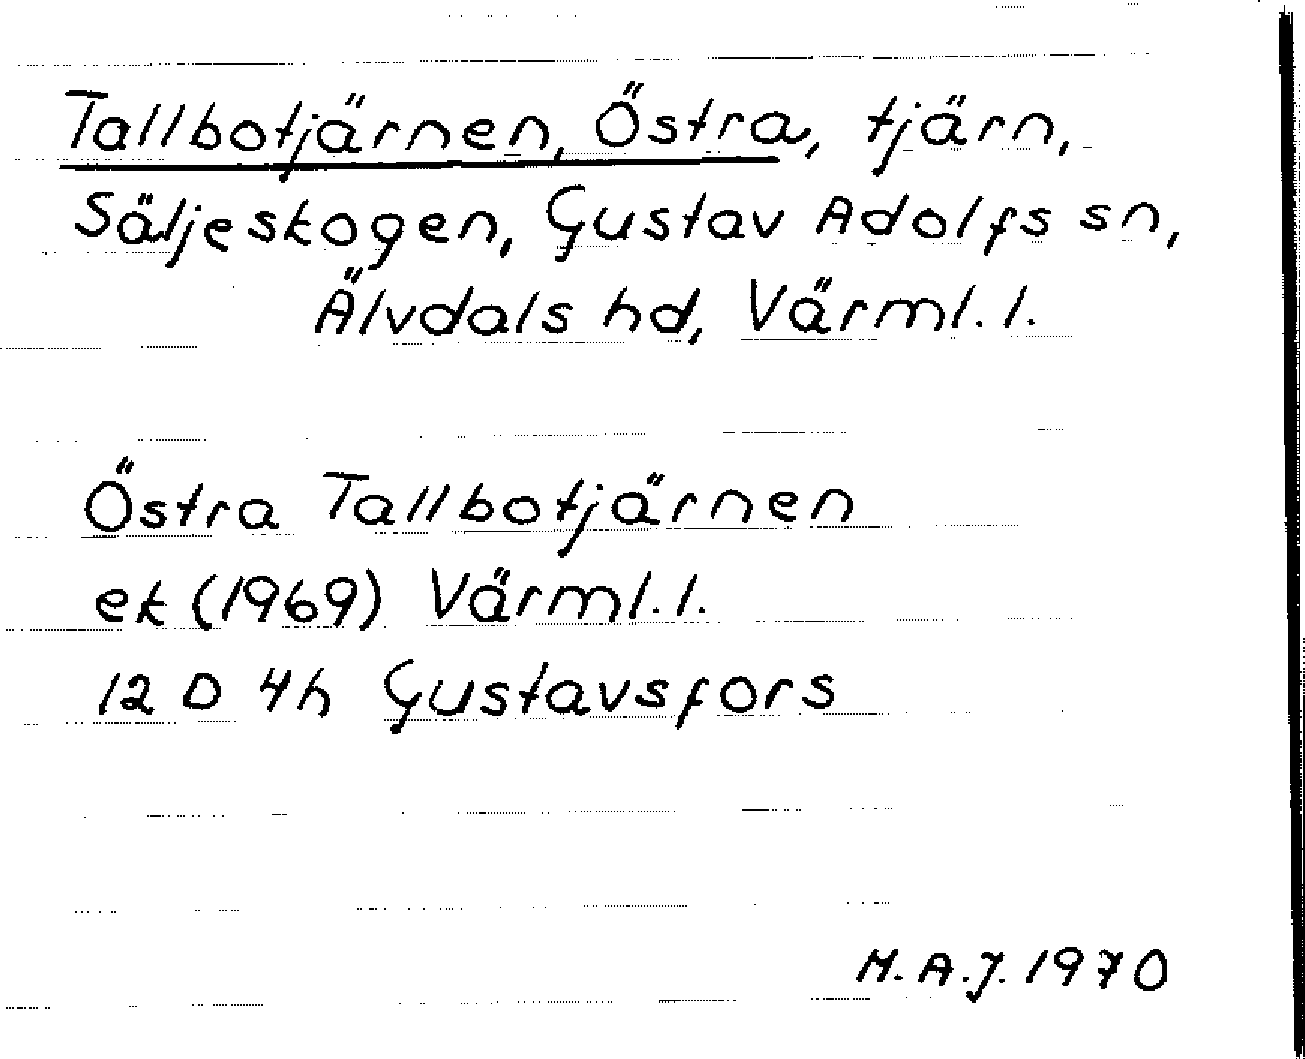 Tallbotjärnen, Östra, tjärn,
Säljeskogen, Gustav Adolfs sn,
Älvdals hd, Värml. l.
Östra Tallbotjärnen
ek (1969) Värml. l.
12 D 4h Gustavsfors
M. A. J. 1970